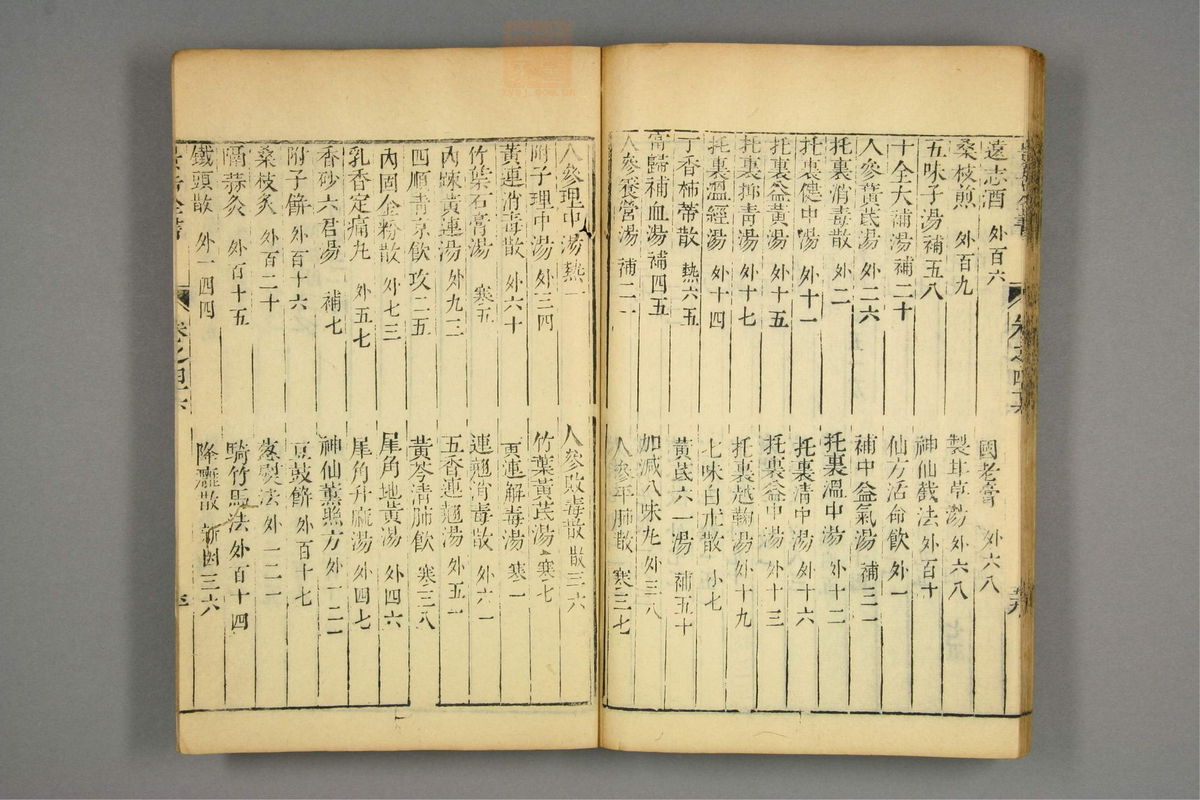 遠志酒 外百六 國老膏 外六八
桑枝煎 外百九 製甘草湯 外六八
五味子湯 補五八 神仙截法 外百十
十全大補湯 補二十 仙方活命飲 外一
人參黃芪湯 外二六 補中益氣湯 補三一
托裏消毒散 外二 托裏溫中湯 外十二
托裏健中湯 外十一 托裏清中湯 外十六
托裏益黃湯 外十五 托裏益中湯 外十三
托裏抑青湯 外十七 托裏越鞠湯 外十九
托裏溫經湯 外十四 七味白朮散 小七
丁香柿蒂散 熱六五 黃芪六一湯 補五十
當歸補血湯 補四五 加減八味丸 外三八
人參養營湯 補二一 人參平肺散 寒三七
人參理中湯 熱一 人參敗毒散 散三六
附子理中湯 外三四 竹葉黃芪湯 寒七
黃連消毒散 外六十 黃連解毒湯 寒一
竹葉石膏湯 寒五 連翹消毒散 外六一
內疎黃連湯 外九二 五香連翹湯 外五一
四順清凉飲 攻二五 黃芩清肺飲 寒三八
內固金粉散 外七三 犀角地黃湯 外四六
乳香定痛丸 外五七 犀角升麻湯 外四七
香砂六君湯 補七 神仙薰照方 外一二二
附子餅 外百十六 豆豉餅 外百十七
桑枝灸 外百二十 蒸熨法 外一二一
隔蒜灸 外百十五 騎竹馬法 外百十四
鐵頭散 外一四四 降癰散 新因三六
卷之四六